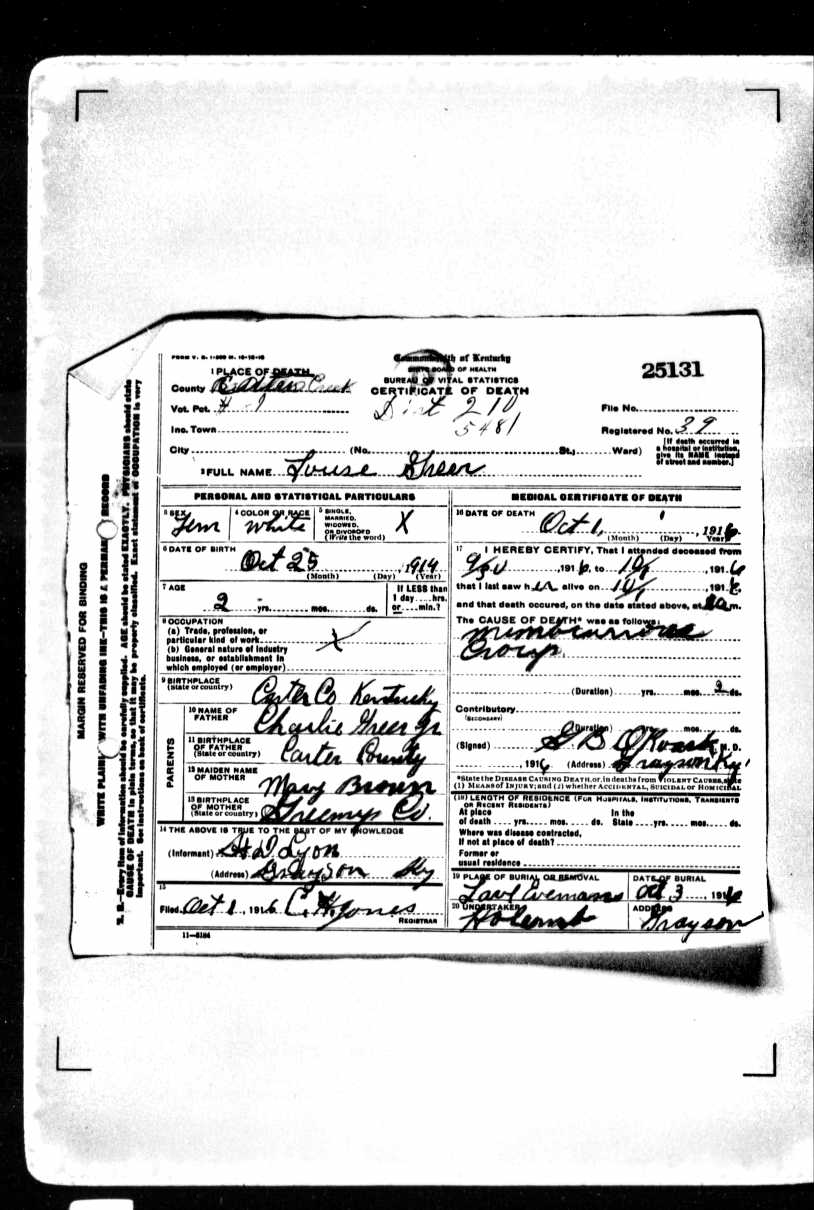 FORM V. S. 1-
Commonwealth of Kentucky
STATE BOARD OF HEALTH
BUREAU OF VITAL STATISTICS
CERTIFICATE OF DEATH
25131
1 PLACE OF DEATH
County Creek
Vot. Pct. # 1
Dist 210
5481
File No.
Inc. Town
Registered No. 39
City (No. St.; Ward)
[If death occurred in
a hospital or institution,
give its NAME instead
of street and number.]
2 FULL NAME Louse Greer
PERSONAL AND STATISTICAL PARTICULARS
3 SEX
Fem
4 COLOR OR RACE
White
5 SINGLE,
MARRIED,
WIDOWED,
OR DIVORCED
(Write the word)
X
6 DATE OF BIRTH
Oct 25, 1914
(Month) (Day) (Year)
7 AGE
2 yrs. mos. ds.
If LESS than
1 day....hrs.
or....min.?
8 OCCUPATION
(a) Trade, profession, or
particular kind of work
(b) General nature of industry
business, or establishment in
which employed (or employer)
X
9 BIRTHPLACE
(State or country)
Carter Co Kentucky
PARENTS
10 NAME OF
FATHER
Charlie Greer Jr
11 BIRTHPLACE
OF FATHER
(State or country)
Carter County
12 MAIDEN NAME
OF MOTHER
Mary Brown
13 BIRTHPLACE
OF MOTHER
(State or country)
Greenup Co.
14 THE ABOVE IS TRUE TO THE BEST OF MY KNOWLEDGE
(Informant) H D Lyon
(Address) Grayson Ky
15
Filed Oct 1, 1916 C. H. Jones
REGISTRAR
11-5184
MEDICAL CERTIFICATE OF DEATH
16 DATE OF DEATH
Oct 1, 1916
(Month) (Day) Year
17 I HEREBY CERTIFY, That I attended deceased from
9/30, 1916, to 10/1, 1916
that I last saw her alive on 10/1, 1916
and that death occured, on the date stated above, at m.
The CAUSE OF DEATH* was as follows:
Croup.
(Duration) yrs. mos. 2 ds.
Contributory
(SECONDARY)
(Duration) yrs. mos. ds.
(Signed) M. D.
, 1916 (Address) Grayson Ky
*State the DISEASE CAUSING DEATH, or, in deaths from VIOLENT CAUSES, state
(1) MEANS of INJURY; and (2) whether ACCIDENTAL, SUICIDAL or HOMICIDAL
(18) LENGTH OF RESIDENCE (FOR HOSPITALS, INSTITUTIONS, TRANSIENTS
OR RECENT RESIDENTS)
At place In the
of death yrs. mos. ds. State yrs. mos. ds.
Where was disease contracted,
If not at place of death?
Former or
usual residence
19 PLACE OF BURIAL OR REMOVAL
DATE OF BURIAL
Oct 3, 1916
20 UNDERTAKER
Holcomb
ADDRESS
Grayson
MARGIN RESERVED FOR BINDING
WRITE PLAINLY WITH UNFADING INK—THIS IS A PERMANENT RECORD
N. B.—Every item of information should be carefully supplied. AGE should be stated EXACTLY. PHYSICIANS should state
CAUSE OF DEATH in plain terms, so that it may be properly classified. Exact statement of OCCUPATION is very
important. See instructions on back of certificate.